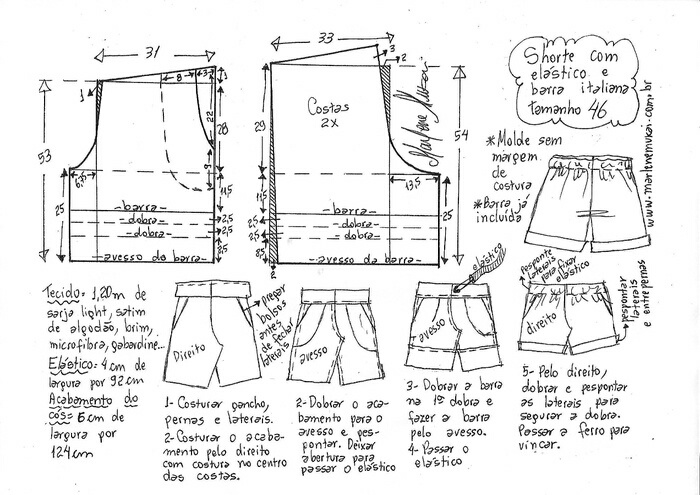 31
8
3
1
1
22
28
9
53
6,75
11,5
25
-barra-
-dobra-
-dobra-
2,5
2,5
2,5
avesso da barra-
33
3
2
Costas
2X
29
54
13,5
11,5
25
-barra-
-dobra-
-dobra-
2,5
2,5
8,5
-avesso da barra-
2
25
Marlene Mukai
Shorte com
elástico e
barra italiana
tamanho 46
*Molde sem
margem
de
costura
*Barra já
incluída
www.marlenemukai.com.br
Tecido= 1,20m de
sarja light, satim
de algodão, brim,
microfibra, gabardine...
Elástico= 4cm de
largura por 92cm
Acabamento do
cós= 6cm de
largura por
124cm
Direito
Prepar
bolsos
antes
de fechar
laterais
avesso
elástico
avesso
Pesponte
laterais
para fixar
elástico
direito
pespontar
laterais
e entrepernas
1- Costurar gancho,
pernas e laterais.
2- Costurar o acaba-
mento pelo direito
com costura no centro
das costas.
2- Dobrar o aca-
bamento para o
avesso e pes-
pontar. Deixar
abertura para
passar o elástico
3- Dobrar a barra
na 1ª dobra e
fazer a barra
pelo avesso.
4- Passar o
elástico
5- Pelo direito,
dobrar e pespontar
as laterais para
segurar a dobra.
Passar a ferro para
vincar.